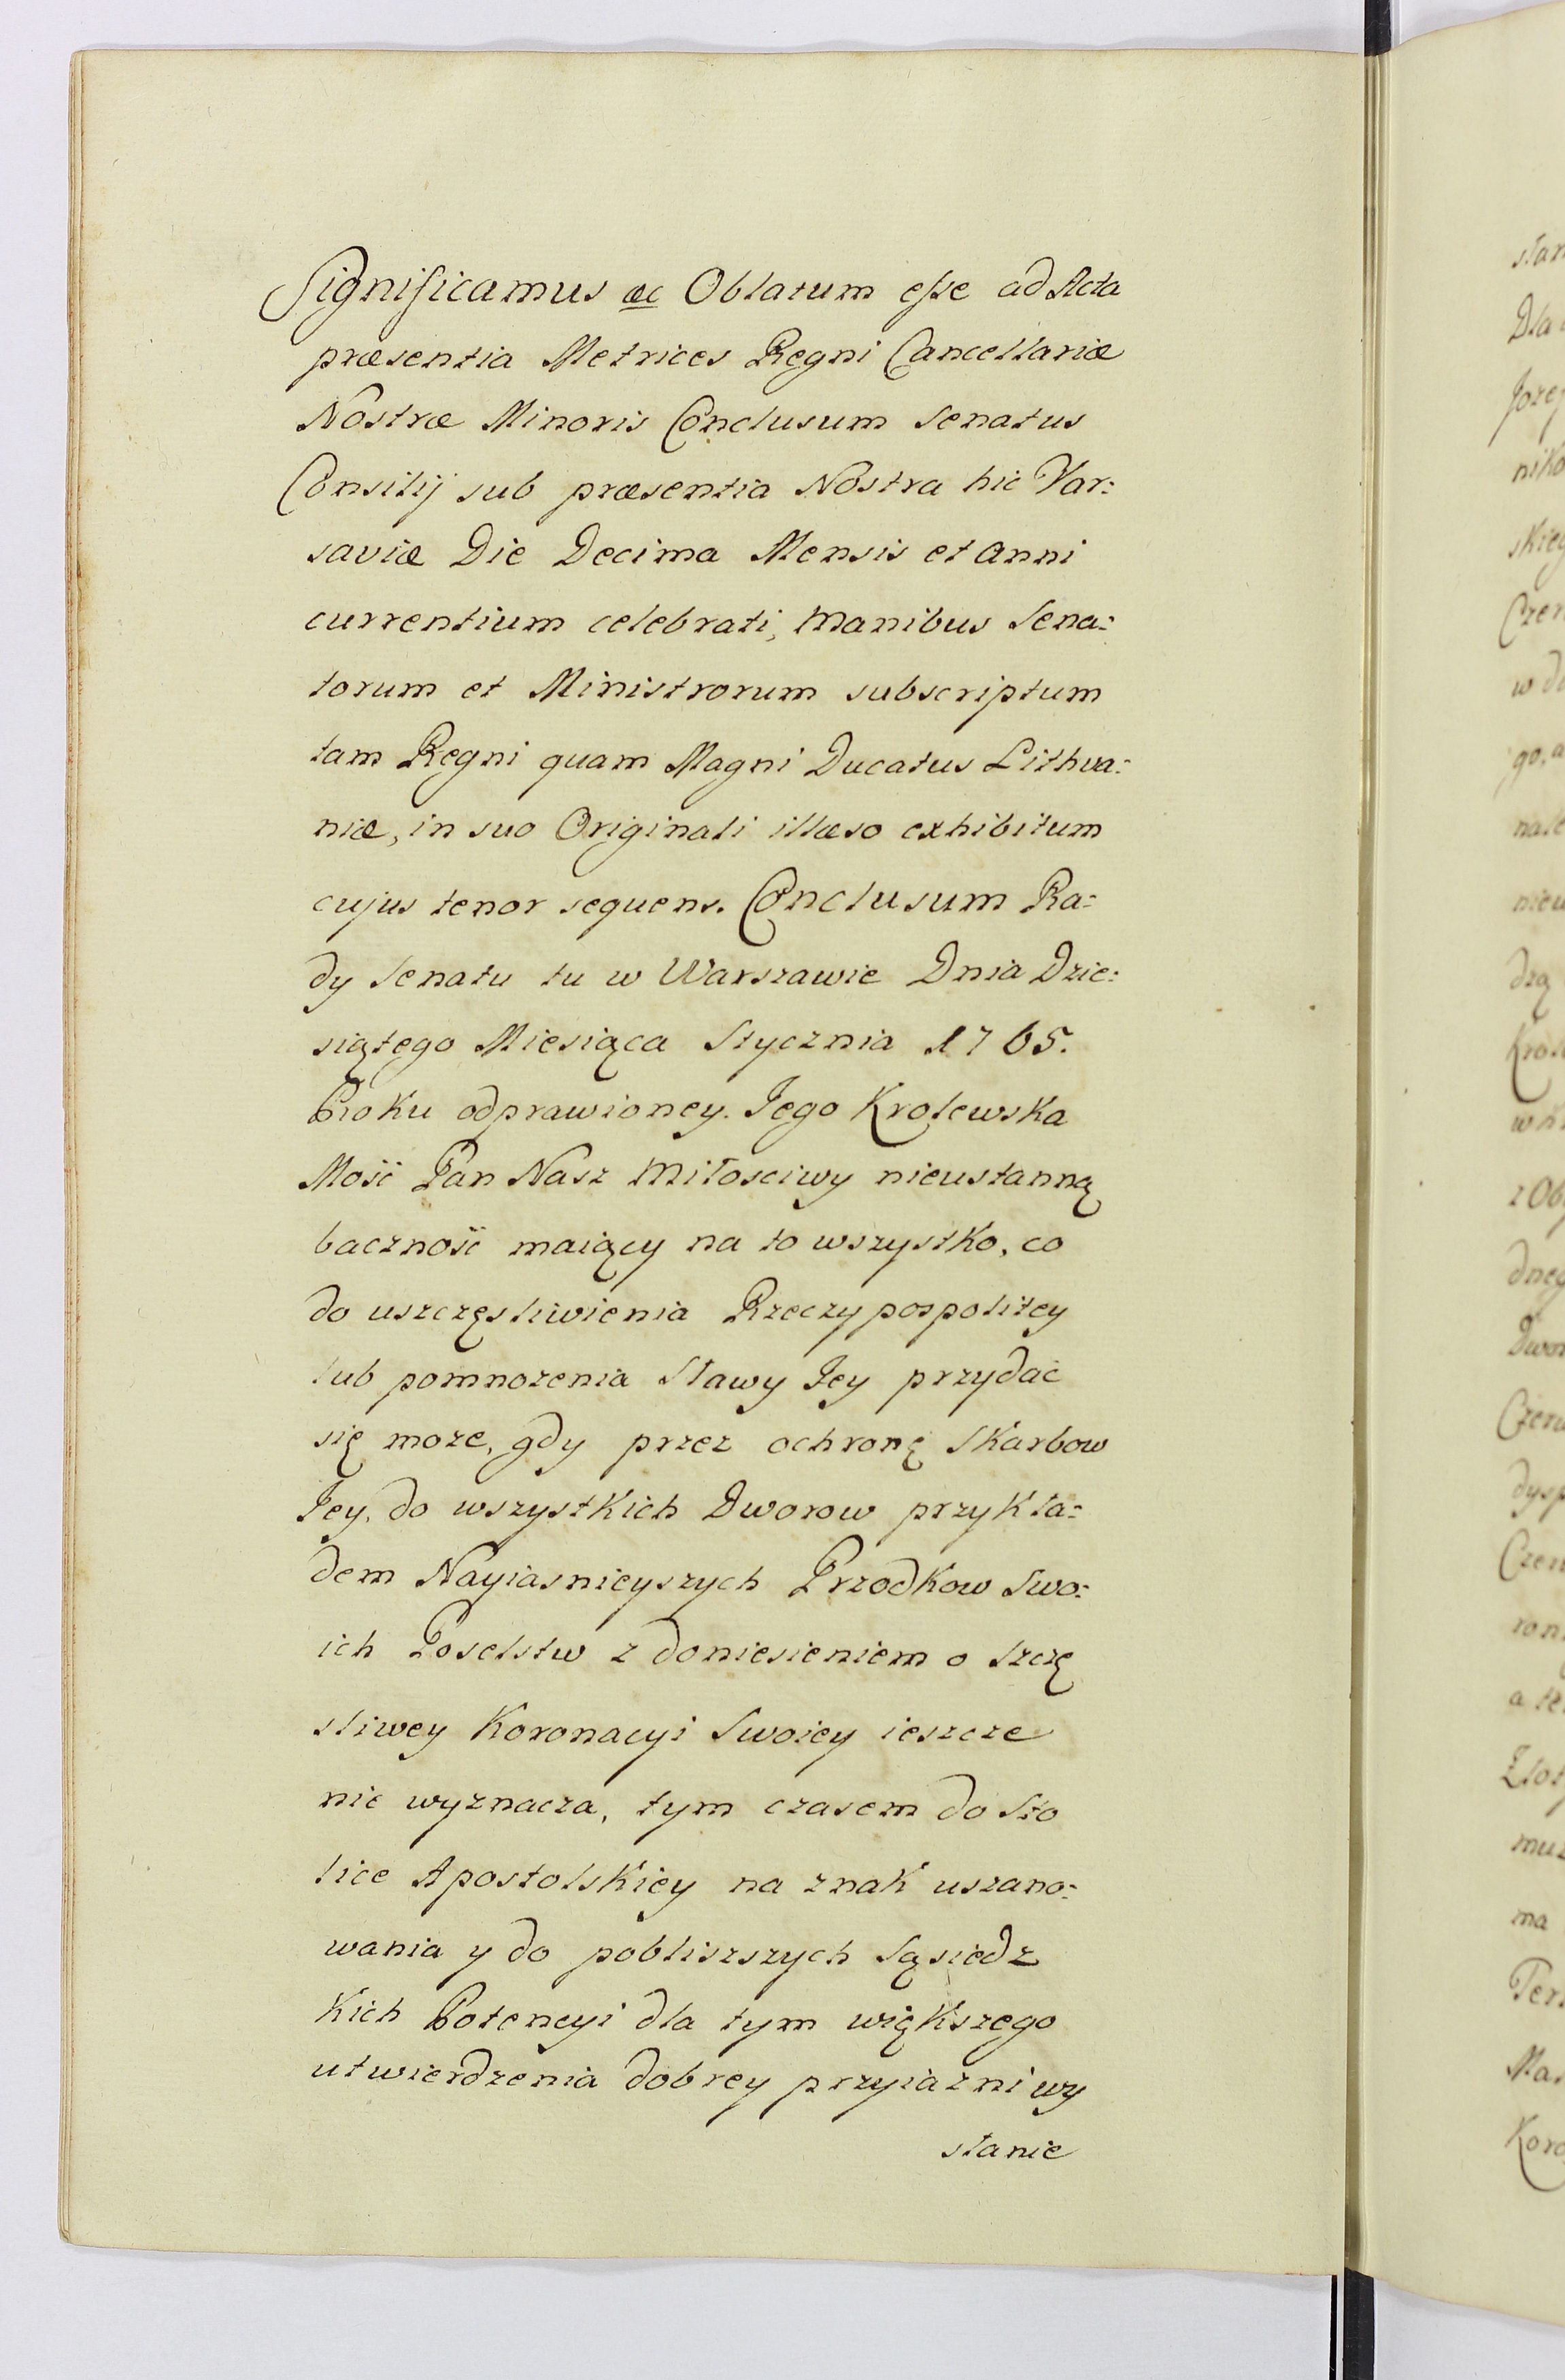 Significamus &c Oblatum esse ad Acta
præsentia Metrices Regni Cancellariæ
Nostræ Minoris Conclusum Senatus
Consilij sub præsentia Nostra hic Var:
saviæ Die Decima Mensis et Anni
currentium celebrati, Manibus Sena:
torum et Ministrorum subscriptum
tam Regni quam Magni Ducatus Lithva:
niæ, in suo Originali illæso exhibitum
cujus tenor sequens. Conclusum Ra:
dy Senatu tu w Warszawie Dnia Dzie:
siątego Miesiąca Stycznia 1765.
Roku odprawioney. Jego Krolewska
Mość Pan Nasz Miłosciwy nieustanną
baczność maiący na to wszystko, co
do uszczęsliwienia Rzeczypospolitey
lub pomnozenia Sławy Jey przydać
się moze, gdy przez ochronę Skarbow
Jey, do wszystkich Dworow przykła:
dem Nayiasnieyszych Przodkow Swo:
ich Poselstw z doniesieniem o Szczę
sliwey Koronacyi Swoiey ieszcze
nie wyznacza, tym czasem do Sto
lice Apostolskiey na znak uszano:
wania y do pobliszszych Sąsiedz
kich Potencyi dla tym większego
utwierdzenia dobrey przyiazni wy
słanie
Dla
Jozef
niko
skieg
Czer
w d
go, a
nale
niew
dzą
z Ob
dneg
Dwor
Czerw
dysp
Czerw
a te
Złot
ma
Mar
Koro